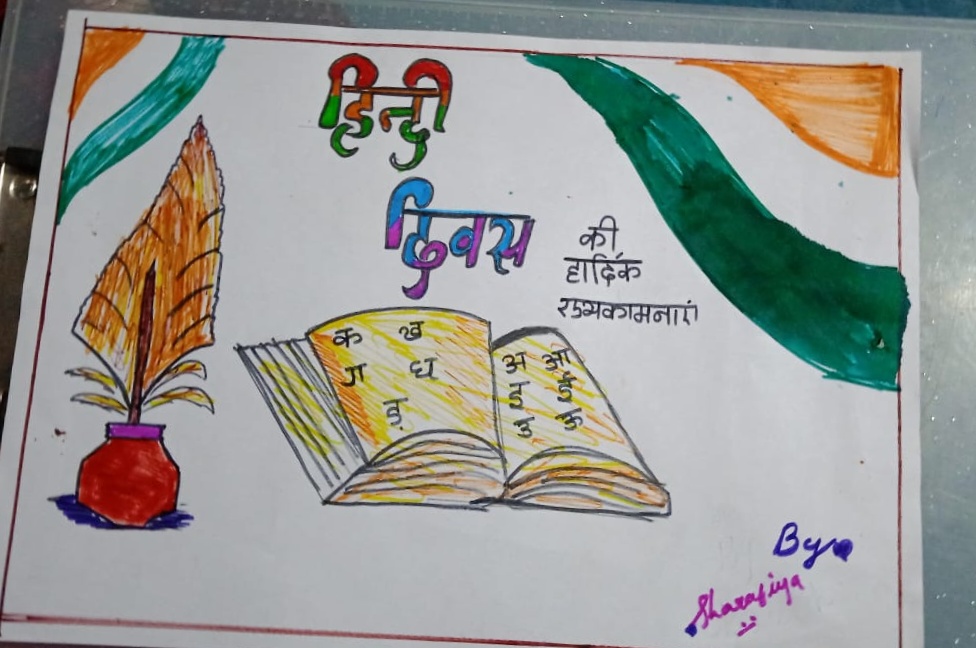 हिन्दी
दिवस
की
हार्दिक
क ख
ग घ
ङ
अ आ
इ ई
उ ऊ
By
Sharafiya